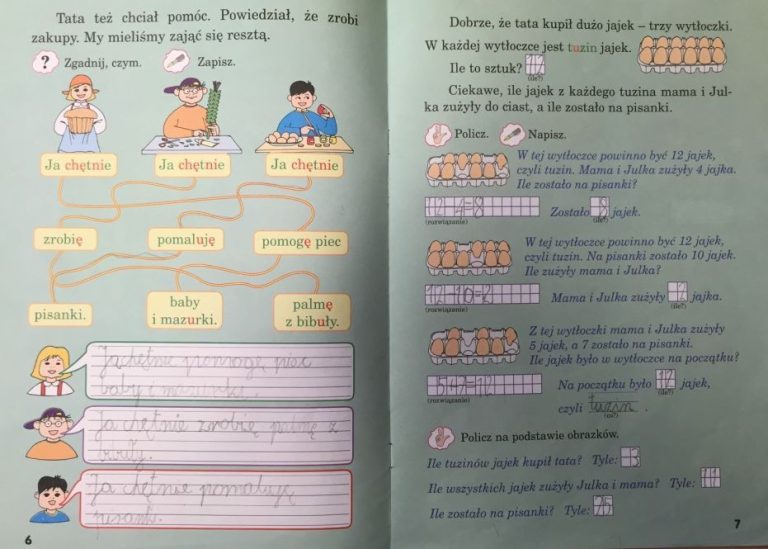 Tata też chciał pomóc. Powiedział, że zrobi
zakupy. My mieliśmy zająć się resztą.
? Zgadnij, czym. Zapisz.
Ja chętnie Ja chętnie Ja chętnie
zrobię pomaluję pomogę piec
pisanki. baby
i mazurki. palmę
z bibuły.
Ja chętnie pomogę piec
baby i mazurki.
Ja chętnie zrobię palmę z
bibuły.
Ja chętnie pomaluję
pisanki.
6
Dobrze, że tata kupił dużo jajek – trzy wytłoczki.
W każdej wytłoczce jest tuzin jajek.
Ile to sztuk? 12
(ile?)
Ciekawe, ile jajek z każdego tuzina mama i Jul-
ka zużyły do ciast, a ile zostało na pisanki.
Policz. Napisz.
W tej wytłoczce powinno być 12 jajek,
czyli tuzin. Mama i Julka zużyły 4 jajka.
Ile zostało na pisanki?
12-4=8 Zostało 8 jajek.
(rozwiązanie) (ile?)
W tej wytłoczce powinno być 12 jajek,
czyli tuzin. Na pisanki zostało 10 jajek.
Ile zużyły mama i Julka?
12-10=2 Mama i Julka zużyły 2 jajka.
(rozwiązanie) (ile?)
Z tej wytłoczki mama i Julka zużyły
5 jajek, a 7 zostało na pisanki.
Ile jajek było w wytłoczce na początku?
5+7=12 Na początku było 12 jajek,
(rozwiązanie) (ile?)
czyli tuzin.
(co?)
Policz na podstawie obrazków.
Ile tuzinów jajek kupił tata? Tyle: 3
Ile wszystkich jajek zużyły Julka i mama? Tyle: 11
Ile zostało na pisanki? Tyle: 25
7